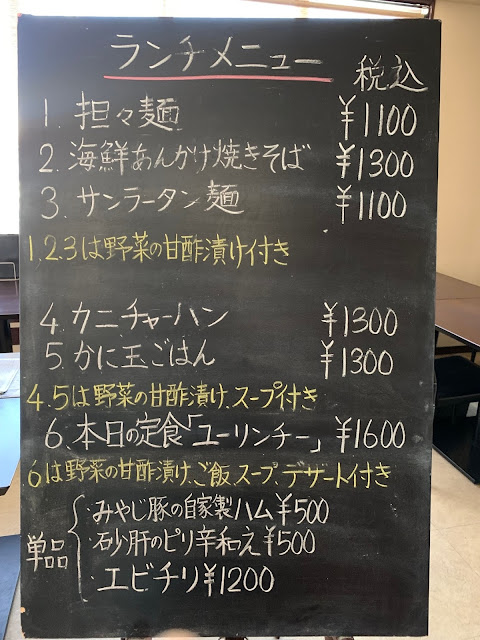 ランチメニュー 税込
1. 担々麺 ¥1100
2. 海鮮あんかけ焼きそば ¥1300
3. サンラータン麺 ¥1100
1.2.3は野菜の甘酢漬け付き
4. カニチャーハン ¥1300
5. かに玉ごはん ¥1300
4.5は野菜の甘酢漬け、スープ付き
6. 本日の定食「ユーリンチー」 ¥1600
6は野菜の甘酢漬け、ご飯、スープ、デザート付き
単品
・みやじ豚の自家製ハム¥500
・砂肝のピリ辛和え¥500
・エビチリ¥1200